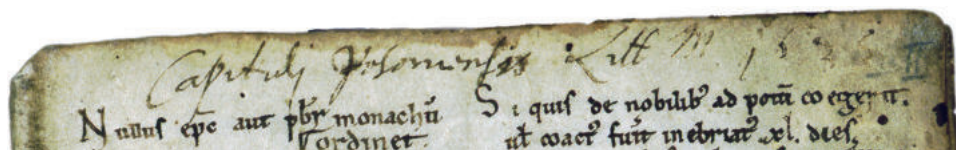 Capituli Posoniensis Litt M. 15
Nullus epc aut pbr monachū
ordinet.
Si quis de nobilib' ad potū coegerit.
ul coact' fuit inebriat' xl. dies.